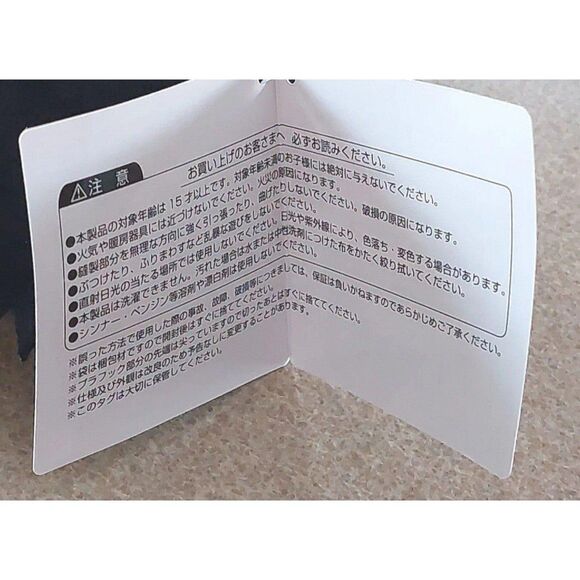 お買い上げのお客さまへ 必ずお読みください。
⚠注 意
●本製品の対象年齢は15才以上です。対象年齢未満のお子様には絶対に与えないでください。
●火気や暖房器具には近づけないでください。火災の原因になります。
●縫製部分を無理な方向に強く引っ張ったり、曲げたりしないでください。破損の原因になります。
●ぶつけたり、ふりまわすなど乱暴な遊びをしないでください。
●直射日光の当たる場所では使用しないでください。日光や紫外線により、色落ち・変色する場合があります。
●本製品は洗濯できません。汚れた場合は水または中性洗剤につけた布をかたく絞り拭いてください。
●シンナー・ベンジン等溶剤や漂白剤は使用しないでください。
※誤った方法で使用した際の事故、故障、破損等につきましては、保証は負いかねますのであらかじめご了承ください。
※袋は梱包材ですので開封後はすぐに捨ててください。
※プラフック部分の先端は尖っていますので切ったあとはすぐに捨ててください。
※仕様及び外観は改良のため予告なしに変更することがあります。
※このタグは大切に保管してください。